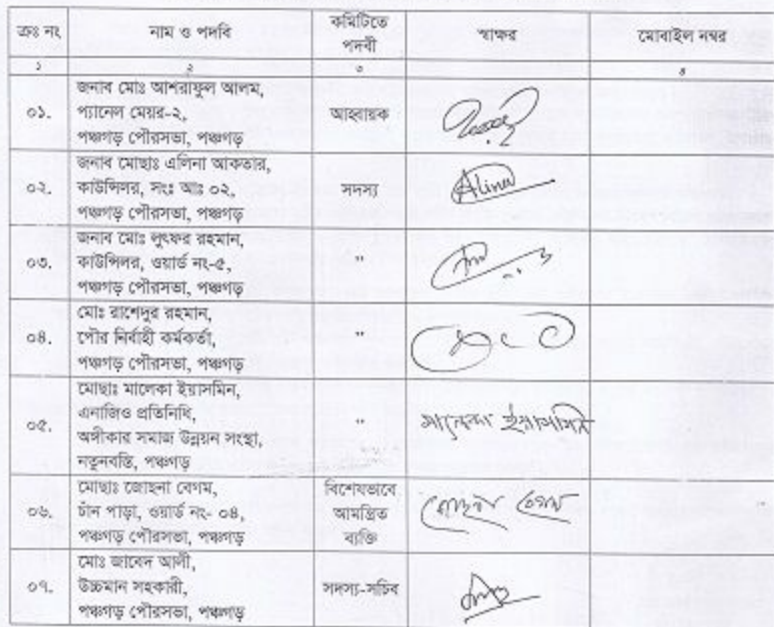 ক্রঃ নং নাম ও পদবি কমিটিতে পদবী স্বাক্ষর মোবাইল নম্বর
১ ২ ৩ ৪
০১. জনাব মোঃ আশরাফুল আলম,
প্যানেল মেয়র-২,
পঞ্চগড় পৌরসভা, পঞ্চগড়
আহবায়ক
০২. জনাব মোছাঃ এলিনা আকতার,
কাউন্সিলর, সংঃ আঃ ০২,
পঞ্চগড় পৌরসভা, পঞ্চগড়
সদস্য Alina
০৩. জনাব মোঃ লুৎফর রহমান,
কাউন্সিলর, ওয়ার্ড নং-৫,
পঞ্চগড় পৌরসভা, পঞ্চগড়
"
০৪. মোঃ রাশেদুর রহমান,
পৌর নির্বাহী কর্মকর্তা,
পঞ্চগড় পৌরসভা, পঞ্চগড়
"
০৫. মোছাঃ মালেকা ইয়াসমিন,
এনাজিও প্রতিনিধি,
অঙ্গীকার সমাজ উন্নয়ন সংস্থা,
নতুনবস্তি, পঞ্চগড়
" মালেকা ইয়াসমিন
০৬. মোছাঃ জোহনা বেগম,
চাঁন পাড়া, ওয়ার্ড নং- ০৪,
পঞ্চগড় পৌরসভা, পঞ্চগড়
বিশেষভাবে
আমন্ত্রিত
ব্যক্তি
জোহনা বেগম
০৭. মোঃ জাবেদ আলী,
উচ্চমান সহকারী,
পঞ্চগড় পৌরসভা, পঞ্চগড়
সদস্য-সচিব